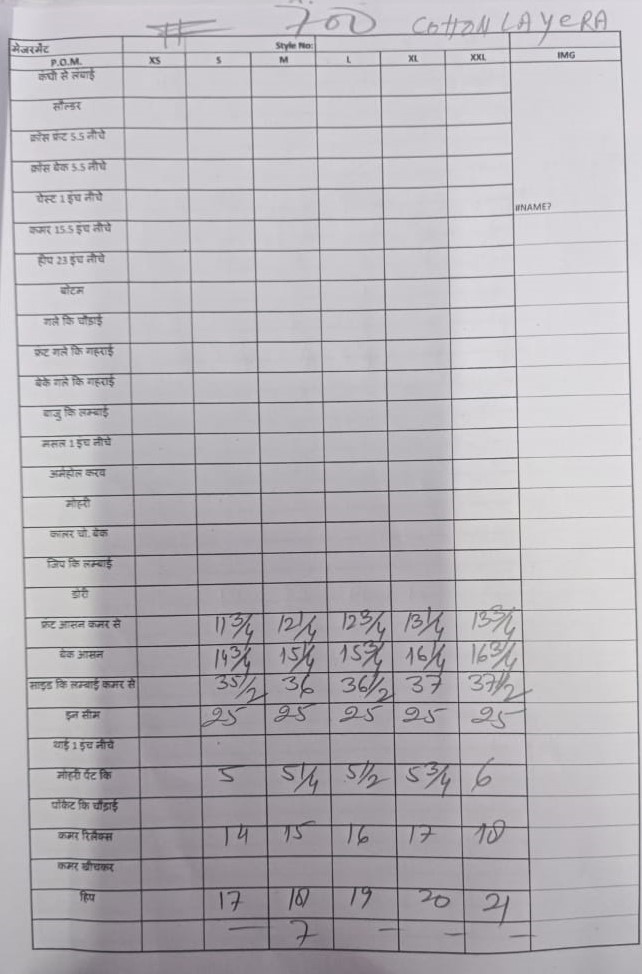 # 700 COTTON LAYERA
मेजरमेंट Style No:
P.O.M. XS S M L XL XXL IMG
कंधी से लंबाई
सोल्डर
क्रोस फ्रंट 5.5 नीचे
क्रोस बेक 5.5 नीचे
चेस्ट 1 इंच नीचे #NAME?
कमर 15.5 इंच नीचे
हीप 23 इंच नीचे
बोटम
गले कि चौड़ाई
फ्रंट गले कि गहराई
बेके गले कि गहराई
बाजु कि लम्बाई
मसल 1 इंच नीचे
अर्महोल करव
मोहरी
कालर चो. बेक
जिप कि लम्बाई
डोरी
फ्रंट आसन कमर से 11 3/4 12 1/4 12 3/4 13 1/4 13 3/4
बेक आसन 14 3/4 15 1/4 15 3/4 16 1/4 16 3/4
साइड कि लम्बाई कमर से 35 1/2 36 36 1/2 37 37 1/2
इन सीम 25 25 25 25 25
थाई 1 इंच नीचे
मोहरी पेंट कि 5 5 1/4 5 1/2 5 3/4 6
पॉकेट कि चौड़ाई
कमर रिलैक्स 14 15 16 17 18
कमर खीचकर
हिप 17 18 19 20 21
— 7 — — —